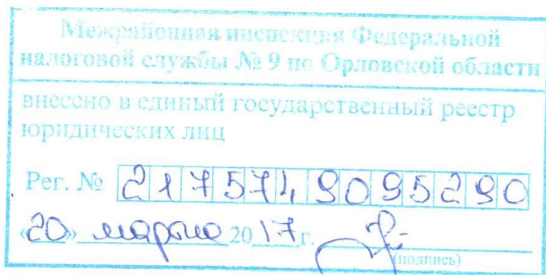 Межрайонная инспекция Федеральной
налоговой службы № 9 по Орловской области
внесено в единый государственный реестр
юридических лиц
Рег. № 2175749095290
«20» марта 2017 г.
(подпись)